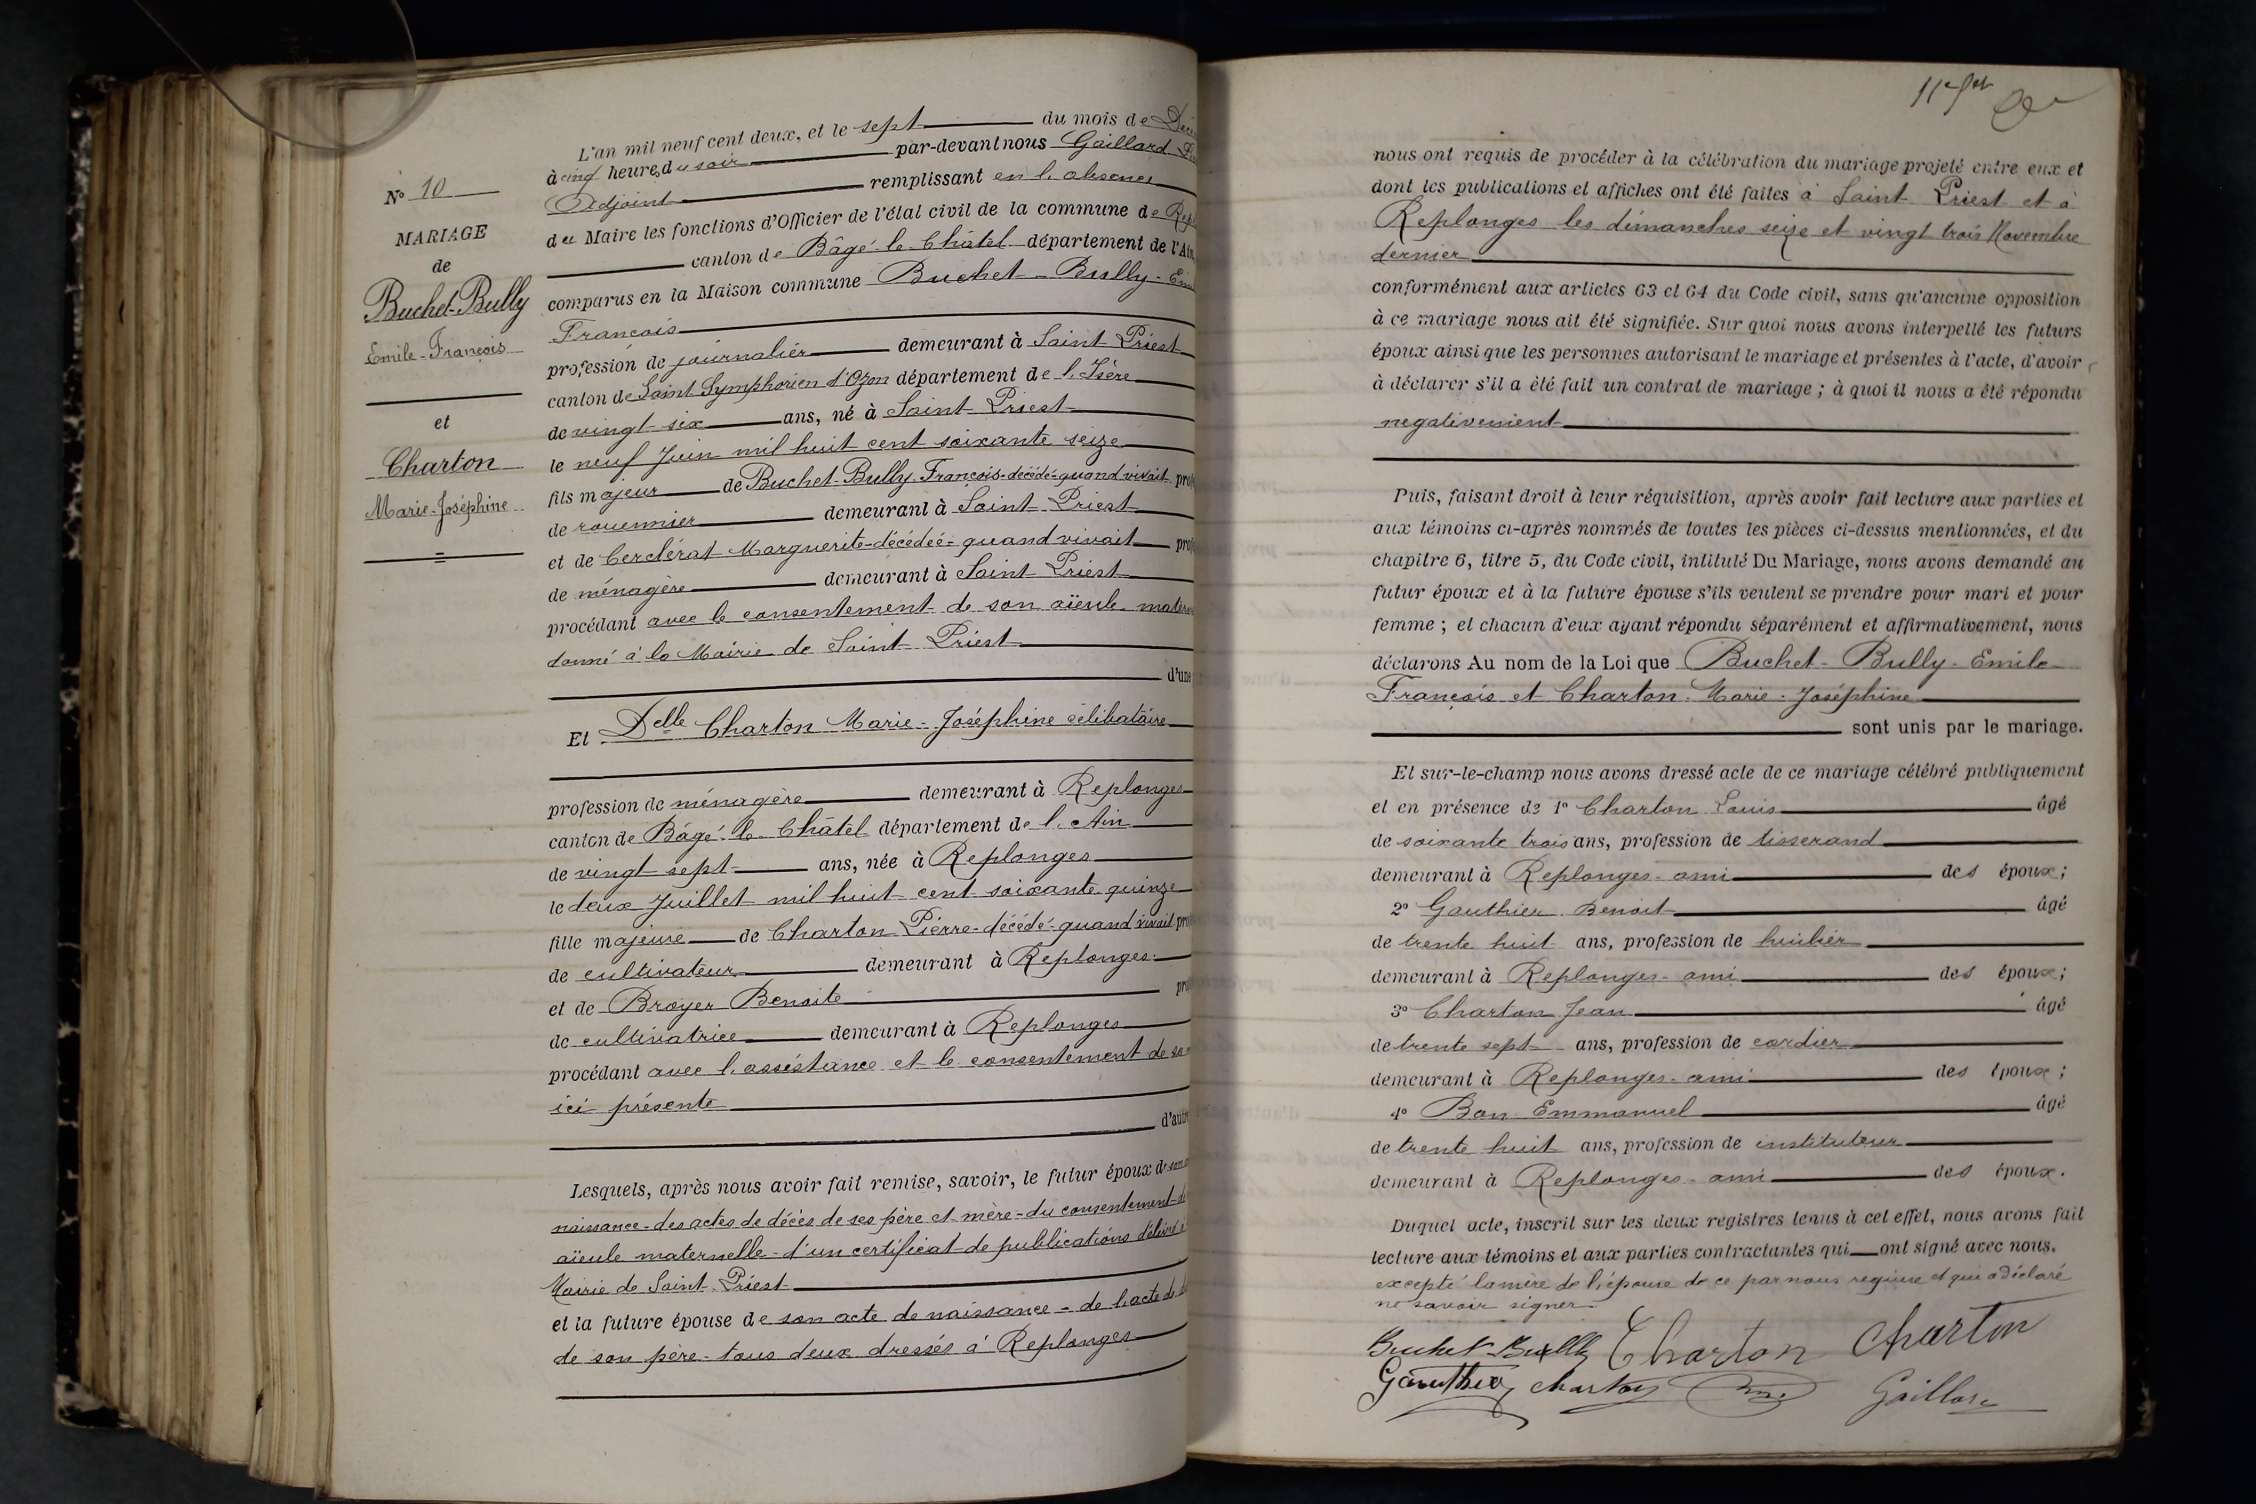 N° 10
MARIAGE
de
Buchet-Bully
Emile-François
et
Charton
Marie-Joséphine
L'an mil neuf cent deux, et le sept du mois de
à cinq heures du soir par-devant nous Gaillard
Adjoint remplissant en l'absence
du Maire les fonctions d'Officier de l'état civil de la commune de
canton de Bâgé-le-Châtel département de l'Ain,
comparus en la Maison commune Buchet-Bully-
François
profession de journalier demeurant à Saint Priest
canton de Saint Symphorien d'Ozon département de l'Isère
de vingt-six ans, né à Saint-Priest
le neuf Juin mil huit cent soixante seize
fils majeur de Buchet-Bully-François-décédé-quand vivait
de rouennier demeurant à Saint-Priest
et de Cerclérat Marguerite-décédée-quand vivait
de ménagère demeurant à Saint-Priest
procédant avec le consentement de son aïeule
donné à la Mairie de Saint Priest
d'une
Et Delle Charton Marie-Joséphine célibataire
profession de ménagère demeurant à Replonges
canton de Bâgé-le-Châtel département de l'Ain
de vingt sept ans, née à Replonges
le deux Juillet mil huit cent soixante quinze
fille majeure de Charton Pierre-décédé-quand vivait
de cultivateur demeurant à Replonges
et de Broyer Benoite
de cultivatrice demeurant à Replonges
procédant avec l'assistance et le consentement de
ici présente
Lesquels, après nous avoir fait remise, savoir, le futur époux de
naissance-des actes de décès de ses père et mère-du consentement
aïeule maternelle-d'un certificat de publications
Mairie de Saint-Priest
et la future épouse de son acte de naissance-de l'acte de
de son père-tous deux dressés à Replonges
nous ont requis de procéder à la célébration du mariage projeté entre eux et
dont les publications et affiches ont été faites à Saint Priest et à
Replonges les dimanches seize et vingt trois Novembre
dernier
conformément aux articles 63 et 64 du Code civil, sans qu'aucune opposition
à ce mariage nous ait été signifiée. Sur quoi nous avons interpellé les futurs
époux ainsi que les personnes autorisant le mariage et présentes à l'acte, d'avoir
à déclarer s'il a été fait un contrat de mariage ; à quoi il nous a été répondu
negativement
Puis, faisant droit à leur réquisition, après avoir fait lecture aux parties et
aux témoins ci-après nommés de toutes les pièces ci-dessus mentionnées, et du
chapitre 6, titre 5, du Code civil, intitulé Du Mariage, nous avons demandé au
futur époux et à la future épouse s'ils veulent se prendre pour mari et pour
femme ; et chacun d'eux ayant répondu séparément et affirmativement, nous
déclarons Au nom de la Loi que Buchet-Bully-Emile
François et Charton-Marie-Joséphine
sont unis par le mariage.
Et sur-le-champ nous avons dressé acte de ce mariage célébré publiquement
et en présence de 1° Charton Louis âgé
de soixante trois ans, profession de tisserand
demeurant à Replonges-ami des époux;
2° Gauthier Benoit âgé
de trente huit ans, profession de huilier
demeurant à Replonges-ami des époux;
3° Charton Jean âgé
de trente sept ans, profession de cordier
demeurant à Replonges-ami des époux;
4° Bon Emmanuel âgé
de trente huit ans, profession de instituteur
demeurant à Replonges-ami des époux.
Duquel acte, inscrit sur les deux registres tenus à cet effet, nous avons fait
lecture aux témoins et aux parties contractantes qui ont signé avec nous.
excepté la mère de l'épouse de ce par nous requise et qui a déclaré
ne savoir signer.
Buchet-Bully Charton Charton
Gauthier Charton Gaillard